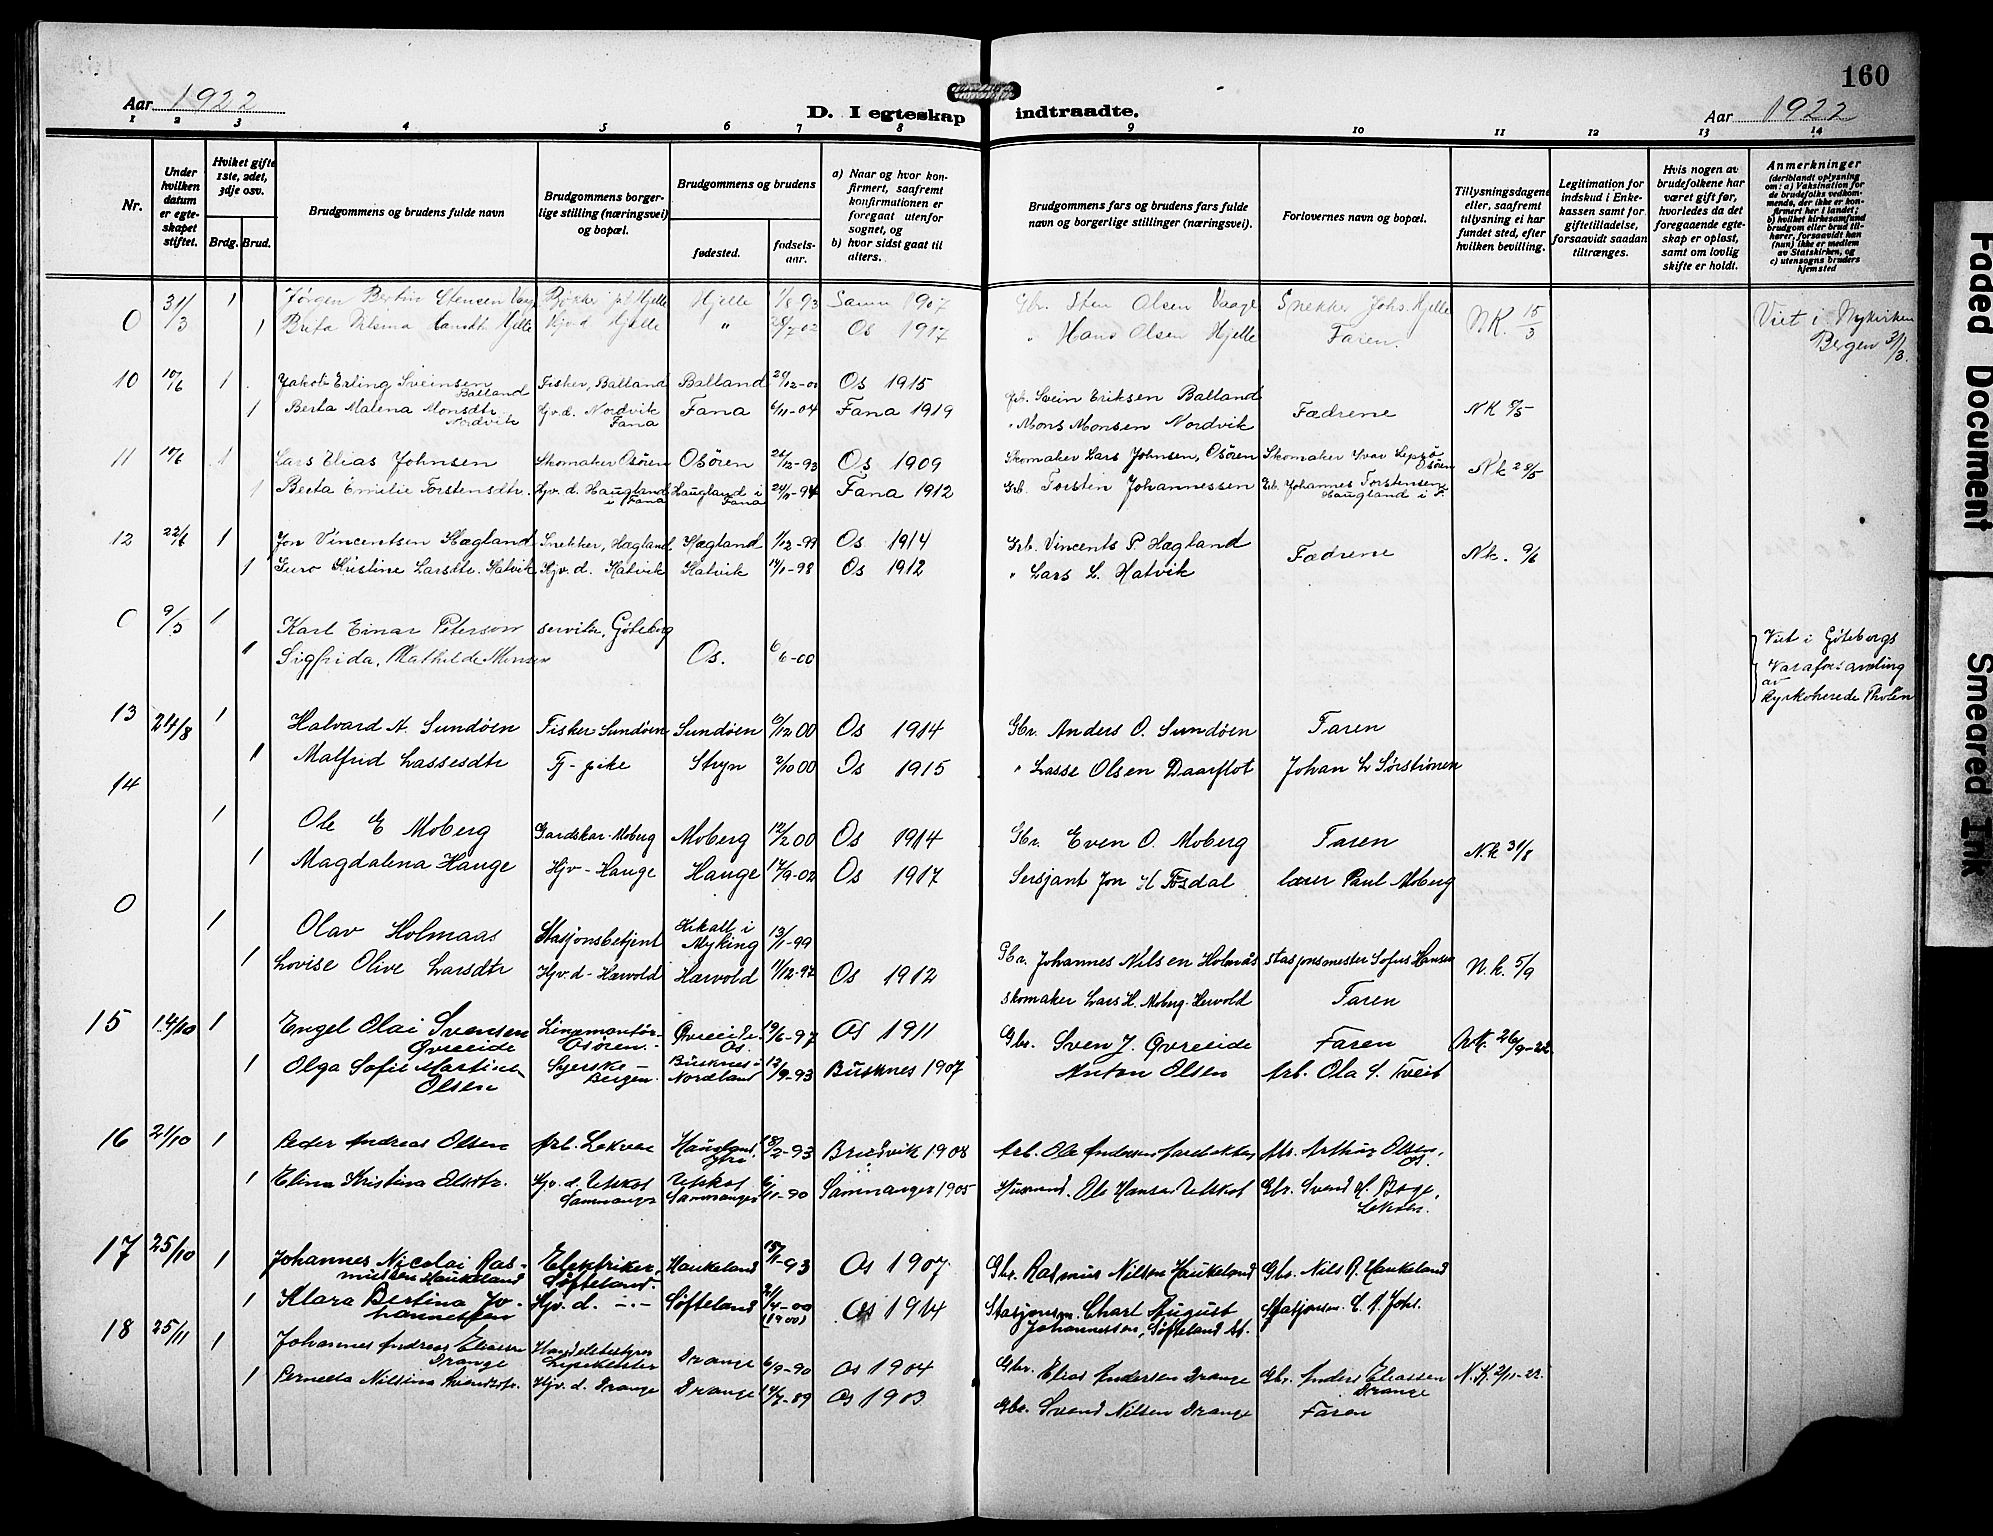 160
Aar 1922
D. I egteskap indtraadte.
Aar 1922
1 2 3 4 5 6 7 8 9 10 11 12 13 14
Nr.
Under hvilken datum er egteskapet stiftet.
Hvilket gifte 1ste, 2det, 3dje osv.
Brdg. Brud.
Brudgommens og brudens fulde navn
Brudgommens borgerlige stilling (næringsvei) og bopæl.
Brudgommens og brudens
fødested.
fødselsaar.
a) Naar og hvor konfirmert, saafremt konfirmationen er foregaat utenfor sognet, og
b) hvor sidst gaat til alters.
Brudgommens fars og brudens fars fulde navn og borgerlige stillinger (næringsvei).
Forlovernes navn og bopæl.
Tillysningsdagene eller, saafremt tillysning ei har fundet sted, efter hvilken bevilling.
Legitimation for indskud i Enkekassen samt for giftetilladelse, forsaavidt saadan tiltrænges.
Hvis nogen av brudefolkene har været gift før, hvorledes da det foregaaende egteskap er opløst, samt om lovlig skifte er holdt.
Anmerkninger (deriblandt oplysning om: a) Vaksination for de brudefolks vedkommende, der ikke er konfirmert her i landet; b) hvilket kirkesamfund brudgom eller brud tilhører, forsaavidt han (hun) ikke er medlem av Statskirken, og c) utensogns bruders hjemsted
0 31/3 1 Jørgen Bertin Stensen Vaage Hjelle 1/8 93 Samn 1907 Gbr. Sten Olsen Vaage Snekker Johs. Hjelle NK. 15/3 Viet i Nykirken
1 Brita Nilsina Hansdt. Hjelle Hjv.d Hjelle " 7 02 Os 1917 " Hans Olsen Hjelle Faren. Bergen 31/3.
10 10/6 1 Jakob Erling Sveinsen Balland Fisker, Balland Balland 29/12-00 Os 1915 Gb. Svein Eriksen Balland Fædrene NK 8/5
1 Berta Malena Monsdtr. Nordvik Hjv.d. Nordvik Fana Fana 6/11-04 Fana 1919 " Mons Monsen Nordvik
11 10/6 1 Lars Elias Johnsen Skomaker Osøren Osøren 26/12-93 Os 1909 Skomaker Lars Johnsen, Osøren Skomaker Ivar Lepsø Osøren Nk 28/5
1 Berta Emilie Torstensdtr. Hjv.d. Haugland i Fana Haugland i Fana 24/11-97 Fana 1912 Grb. Torsten Johannessen Grb. Johannes Torstensen Haugland i F.
12 22/6 1 Jon Vincentsen Hægland Snekker, Hægland Hægland 1/12-99 Os 1914 Grb. Vincents P. Hægland Fædrene Nk. 9/6
1 Guro Kristine Larsdtr. Hatvik Hjv.d. Hatvik Hatvik 14/1-98 Os 1912 " Lars L. Hatvik
0 9/5 1 Karl Einar Peterson servitør, Göteborg Viet i Göteborgs
1 Sigfrida, Mathilde Monsen Os. 6/6-00 Vasaförsamling av Kyrkoherede Tholén
13 24/8 1 Halvard A. Sundøen Fisker Sundøen Sundøen 6/12 00 Os 1914 Gbr. Anders O. Sundøen Faren
1 Malfrid Lassesdtr Tj-pike Stryn 2/10 00 Os 1915 " Lasse Olsen Daarflot Johan L Sørstrønen
14 1 Ole E Moberg Gardskar-Moberg Moberg 12/2 00 Os 1914 Gbr. Even O. Moberg Faren N.k 31/8
1 Magdalena Hauge Hjv-Hauge Hauge 17/9-02 Os 1917 Sersjant Jon H Tøsdal lærer Paul Moberg
0 1 Olav Holmaas Stasjonsbetjent i Myking 13/1-99 Gbr. Johannes Nilsen Holmås stasjonsmester Sofus Hansen N.k. 5/9
1 Lovise Olive Larsdtr Hjv.d-Hærvold Hærvold 11/12-97 Os 1912 skomaker Lars H. Moberg-Hervold Faren
15 14/10 1 Engel Olai Svensen Øvreeide Linjemontør-Osøren.- Øvreeide Os. 19/6-97 Os 1911 Gbr. Sven J. Øvreeide Faren NK. 26/9-22
1 Olga Sofie Martine Olsen Syerske-Bergen Busknes i Nordland 12/9-93 Busknes 1907 Anton Olsen Arb. Ola S. Tveit
16 21/10 1 Peder Andreas Olsen Arb. Lekven Haugland, ytre 18/2-93 Bredvik 1908 Arb. Ole Andersen Arthur Olsen, Os.
1 Elina Kristina Olsdtr. Hjv.d. Utskot Samnanger Utskot Samnanger 11-90 Samnanger 1905 Husmand. Ole Hansen Utskot Gbr. Svend H. Boge, Lekven.
17 25/10 1 Johannes Nicolai Rasmussen Haukeland Elektriker, Søfteland- Haukeland 15/1-93 Os 1907 Gbr. Rasmus Nilsen Haukeland Gbr. Nils R. Haukeland
1 Klara Bertina Johannessen Hjv.d. -"- Søfteland 21/4-00 (1900) Os 1914 Stasjonsm. Charl August Johannessen, Søfteland st. Stasjonsm. C. A. Johs.
18 25/11 1 Johannes Andreas Eliassen Drange Handelsbestyrer Drange 6/9-90 Os 1904 Gbr. Elias Andersen Drange Gbr. Anders Eliassen Drange N.K. 2/11-22
1 Perneta Nilsina Svendsdtr. Hjv.d. Drange Drange 14/7-89 Os 1903 Gbr. Svend Nilsen Drange Faren
Faded Document
Smeared Ink